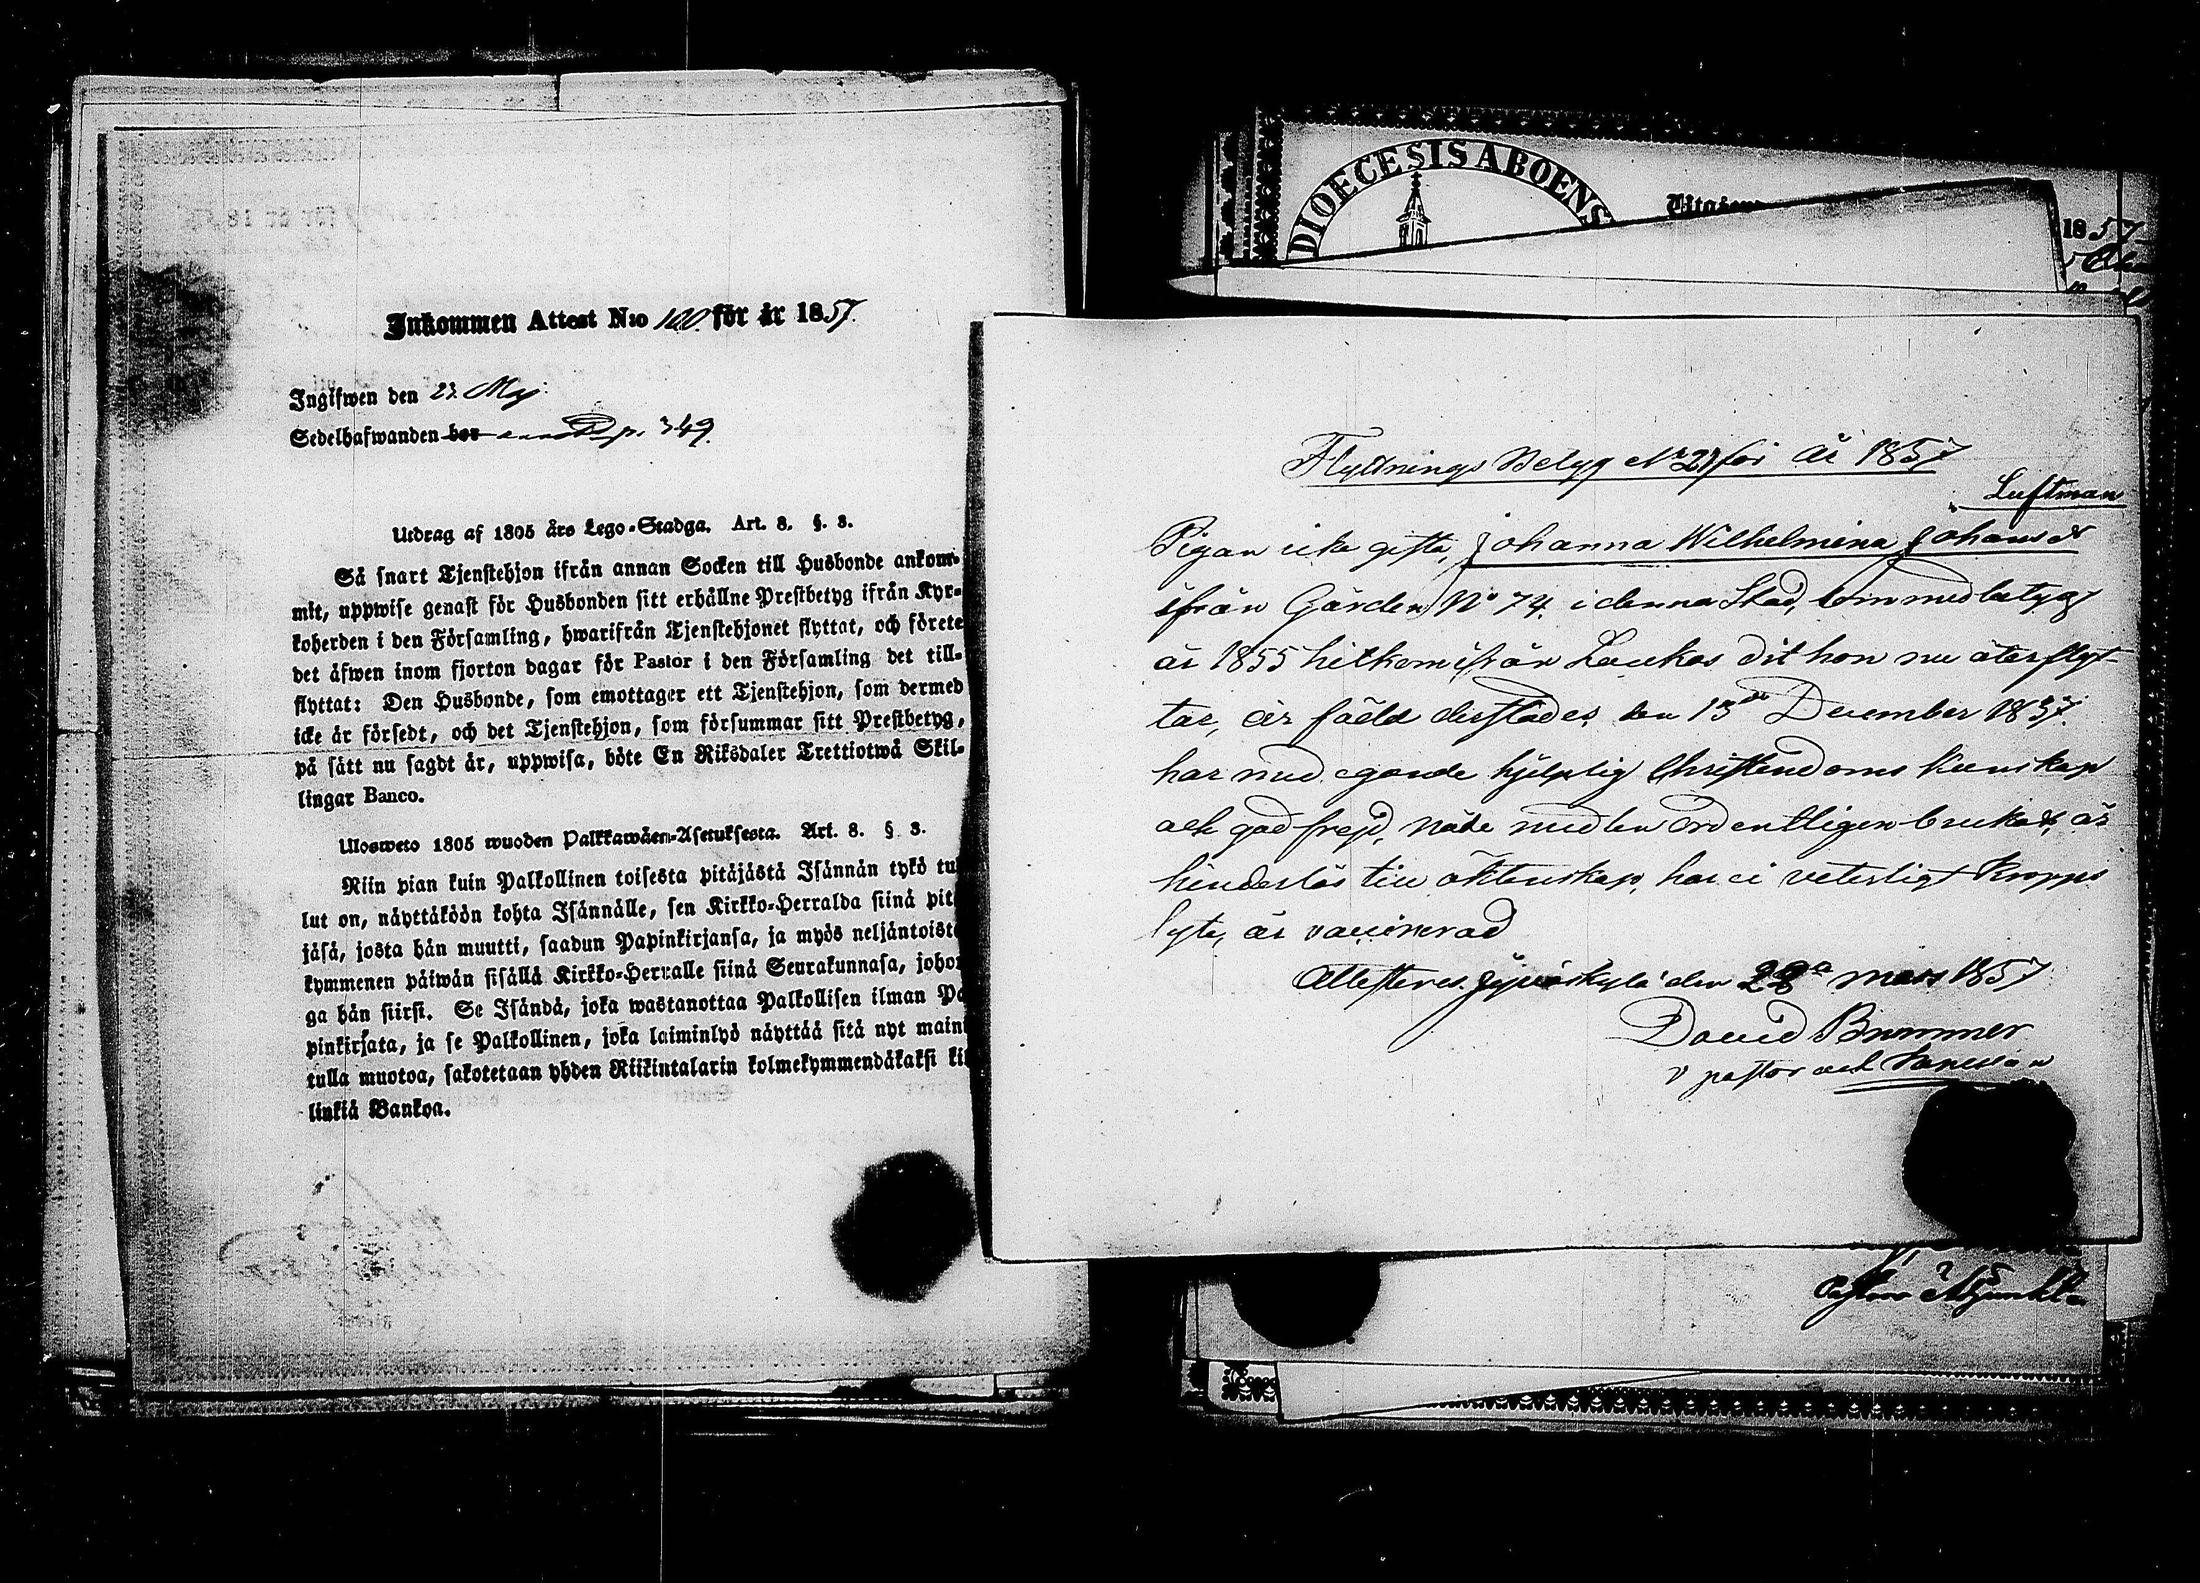 Inkommen Attest N:o 100. för år 1857.
Ingifwen den 23 Maj.
Sedelhafwanden bor p. 349.
Utdrag af 1805 års Lego-Stadga. Art. 8. §. 3.
Så snart Tjenstehjon ifrån annan Socken till Husbonde ankom-
mit, uppwise genast för Husbonden sitt erhållne Prestbetyg ifrån Kyr-
koherden i den Församling, hwarifrån Tjenstehjonet flyttat, och förete
det äfwen inom fjorton dagar för Pastor i den Församling det till-
flyttat: Den Husbonde, som emottager ett Tjenstehjon, som dermed
icke är försedt, och det Tjenstehjon, som försummar sitt Prestbetyg,
på sätt nu sagdt är, uppwisa, böte En Riksdaler Trettiotwå Skil-
lingar Banco.
Ulosweto 1805 wuoden Palkkawäen-Asetuksesta. Art. 8. § 3.
Niin pian kuin Palkollinen toisesta pitäjästä Isännän tykö tu
lut on, näyttäköön kohta Isännälle, sen Kirkko-Herralda siinä pit
jäsä, josta hän muutti, saadun Papinkirjansa, ja myös neljäntoist
kymmenen päiwän sisällä Kirkko-Herralle siinä Seurakunnasa, johon
ga hän siirsi. Se Isändä, joka wastanottaa Palkollisen ilman Pa
pinkirjata, ja se Palkollinen, joka laiminlyö näyttää sitä nyt maini
tulla muotoa, sakotetaan yhden Riikintalarin kolmekymmendäkaksi kil
linkiä Bankoa.
DIOECESIS ABOENS
1857
Flyttnings Betyg No 27 för år 1857
Luftman
Pigan icke gifta, Johanna Wilhelmina Johansdr
ifrån Gården No 74. i denna Stad, som med betyg
år 1855 hitkom ifrån Laukas dit hon nu återflyt-
tar, är född derstädes den 15de December 1837.
har med egande hjelplig Christendoms kunskap
och god frejd, nåde medlen ordentligen brukat, är
hinderlös till äktenskap, har ei veterligt kropps
lyte, är vaccinerad
Attesteres. Jyväskylä den 22a mars 1857
David Brummer
v pastor